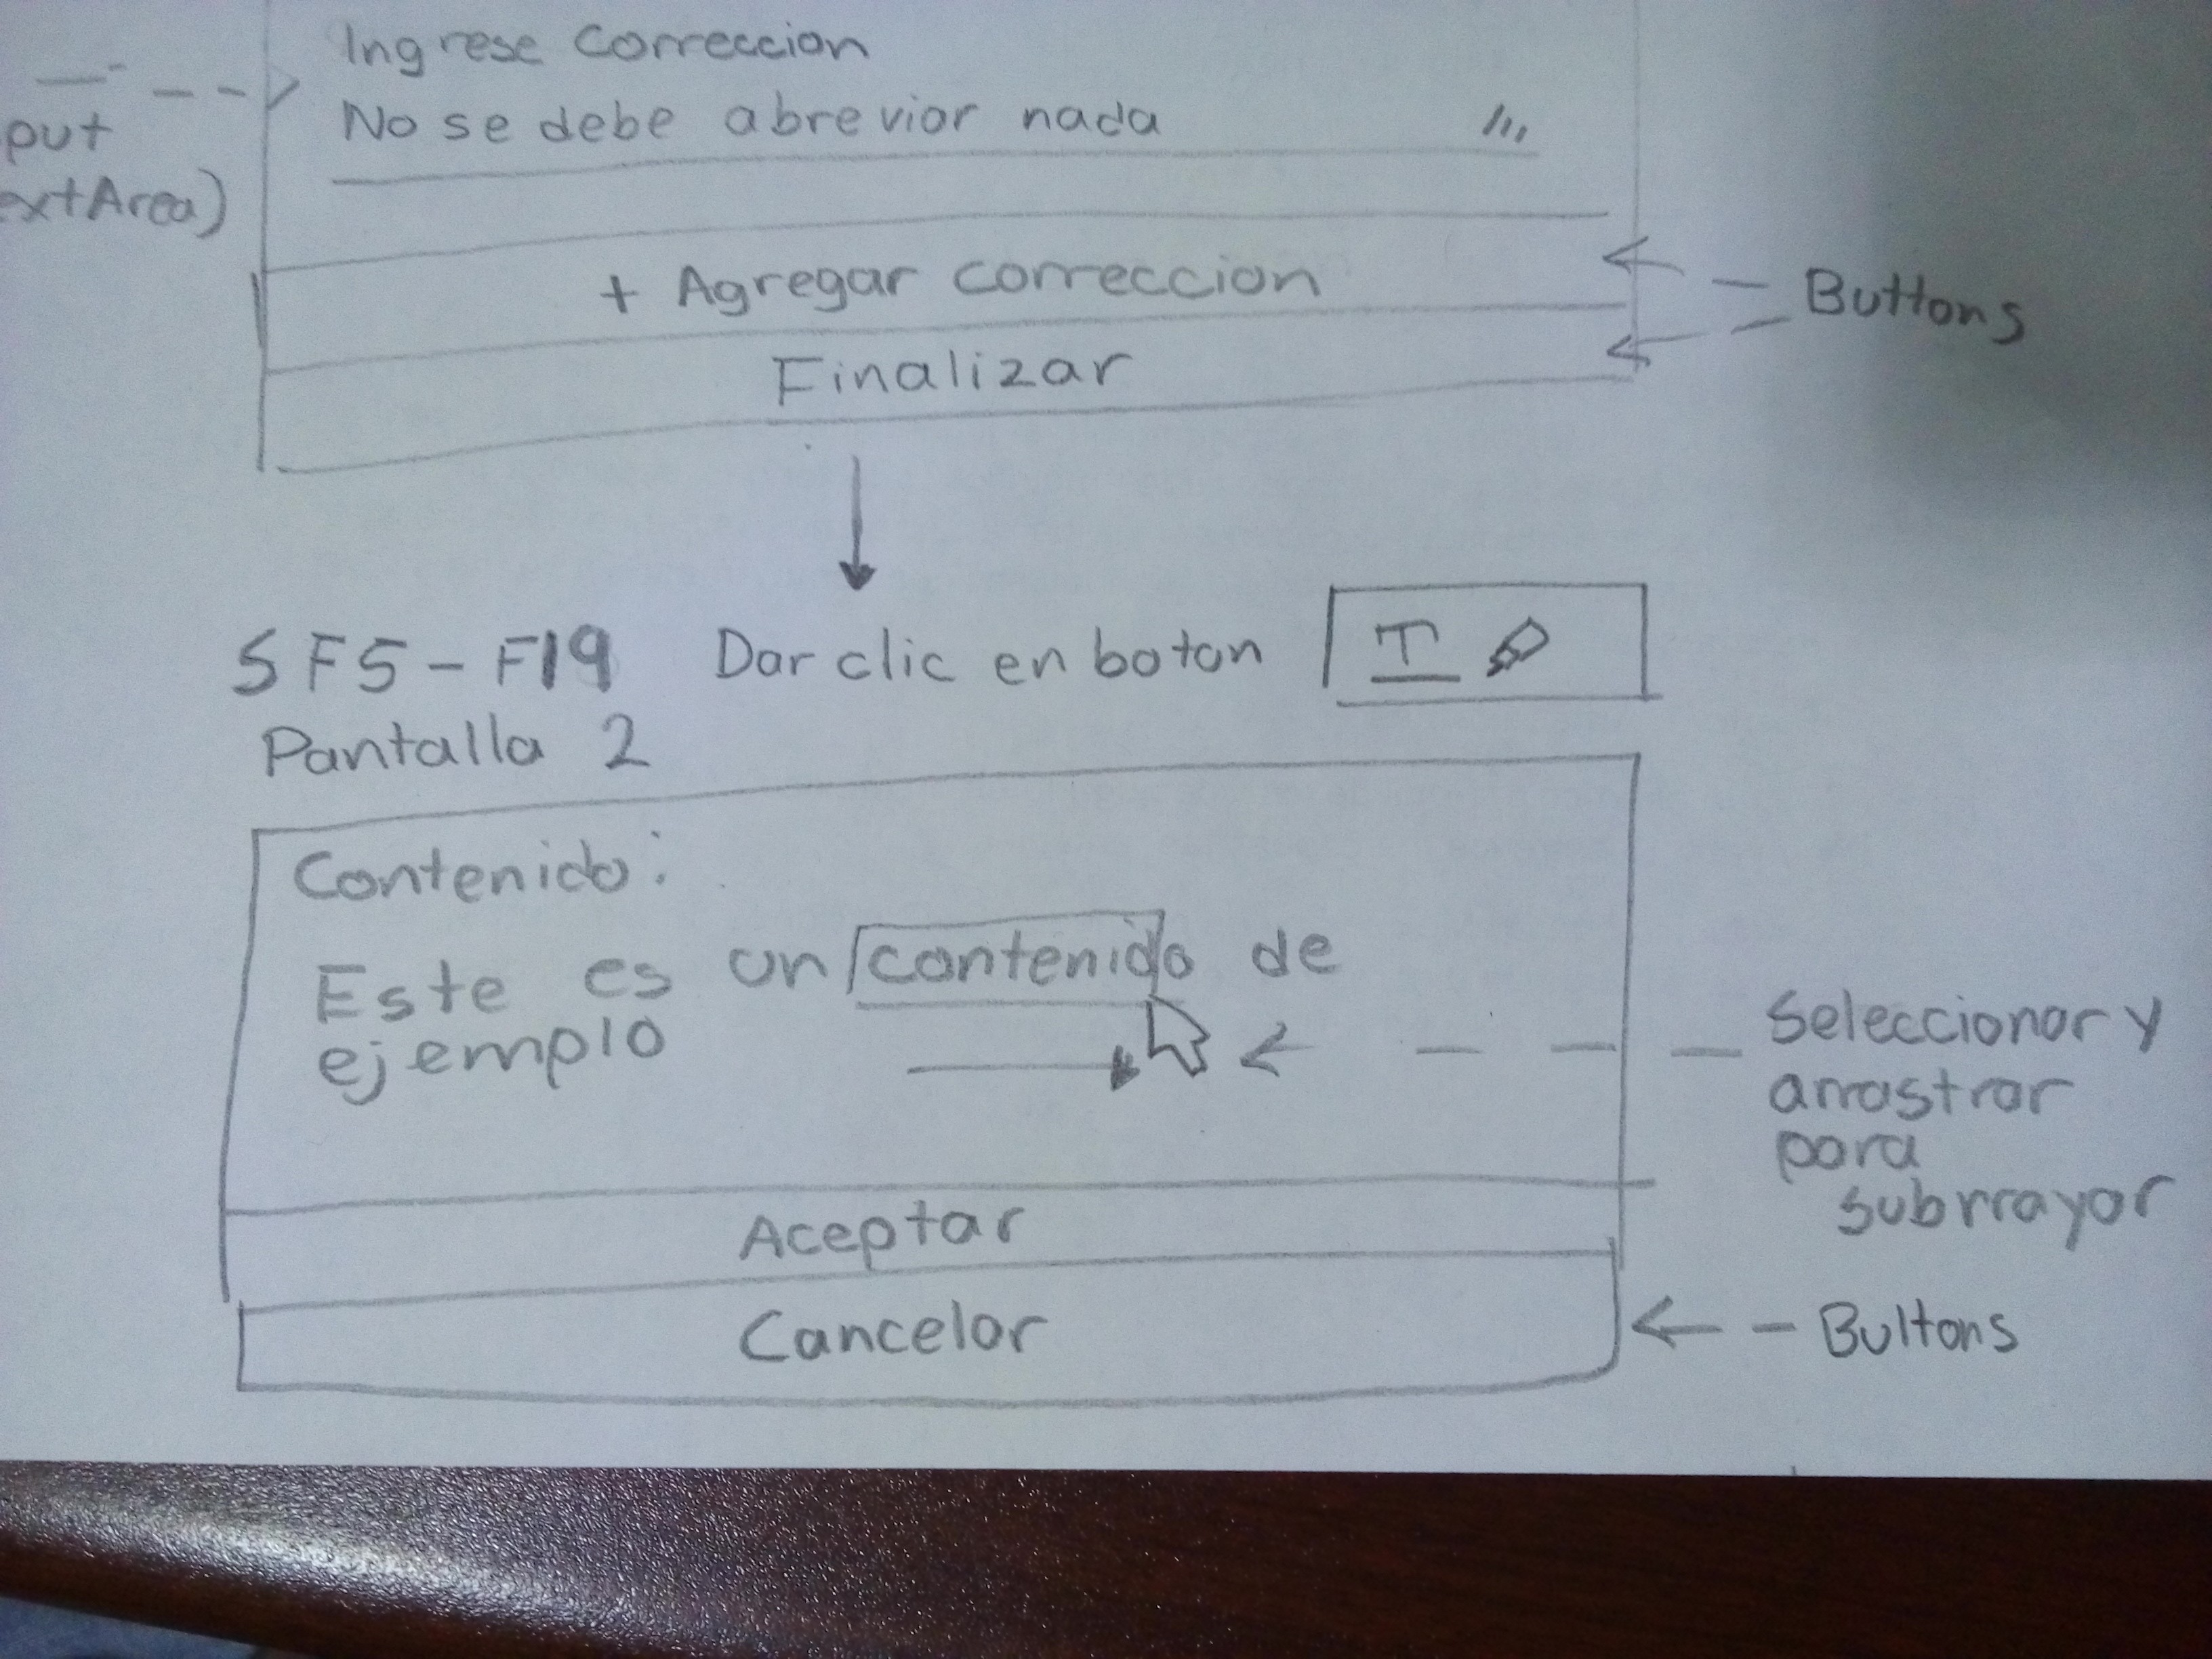 Ingrese Correccion
No se debe abreviar nada
put
extArea)
+ Agregar correccion
Buttons
Finalizar
SF5-F19 Dar clic en boton T
Pantalla 2
Contenido:
Este es un contenido de
ejemplo
Seleccionar y
arrastrar
para
subrrayar
Aceptar
Cancelar
Buttons